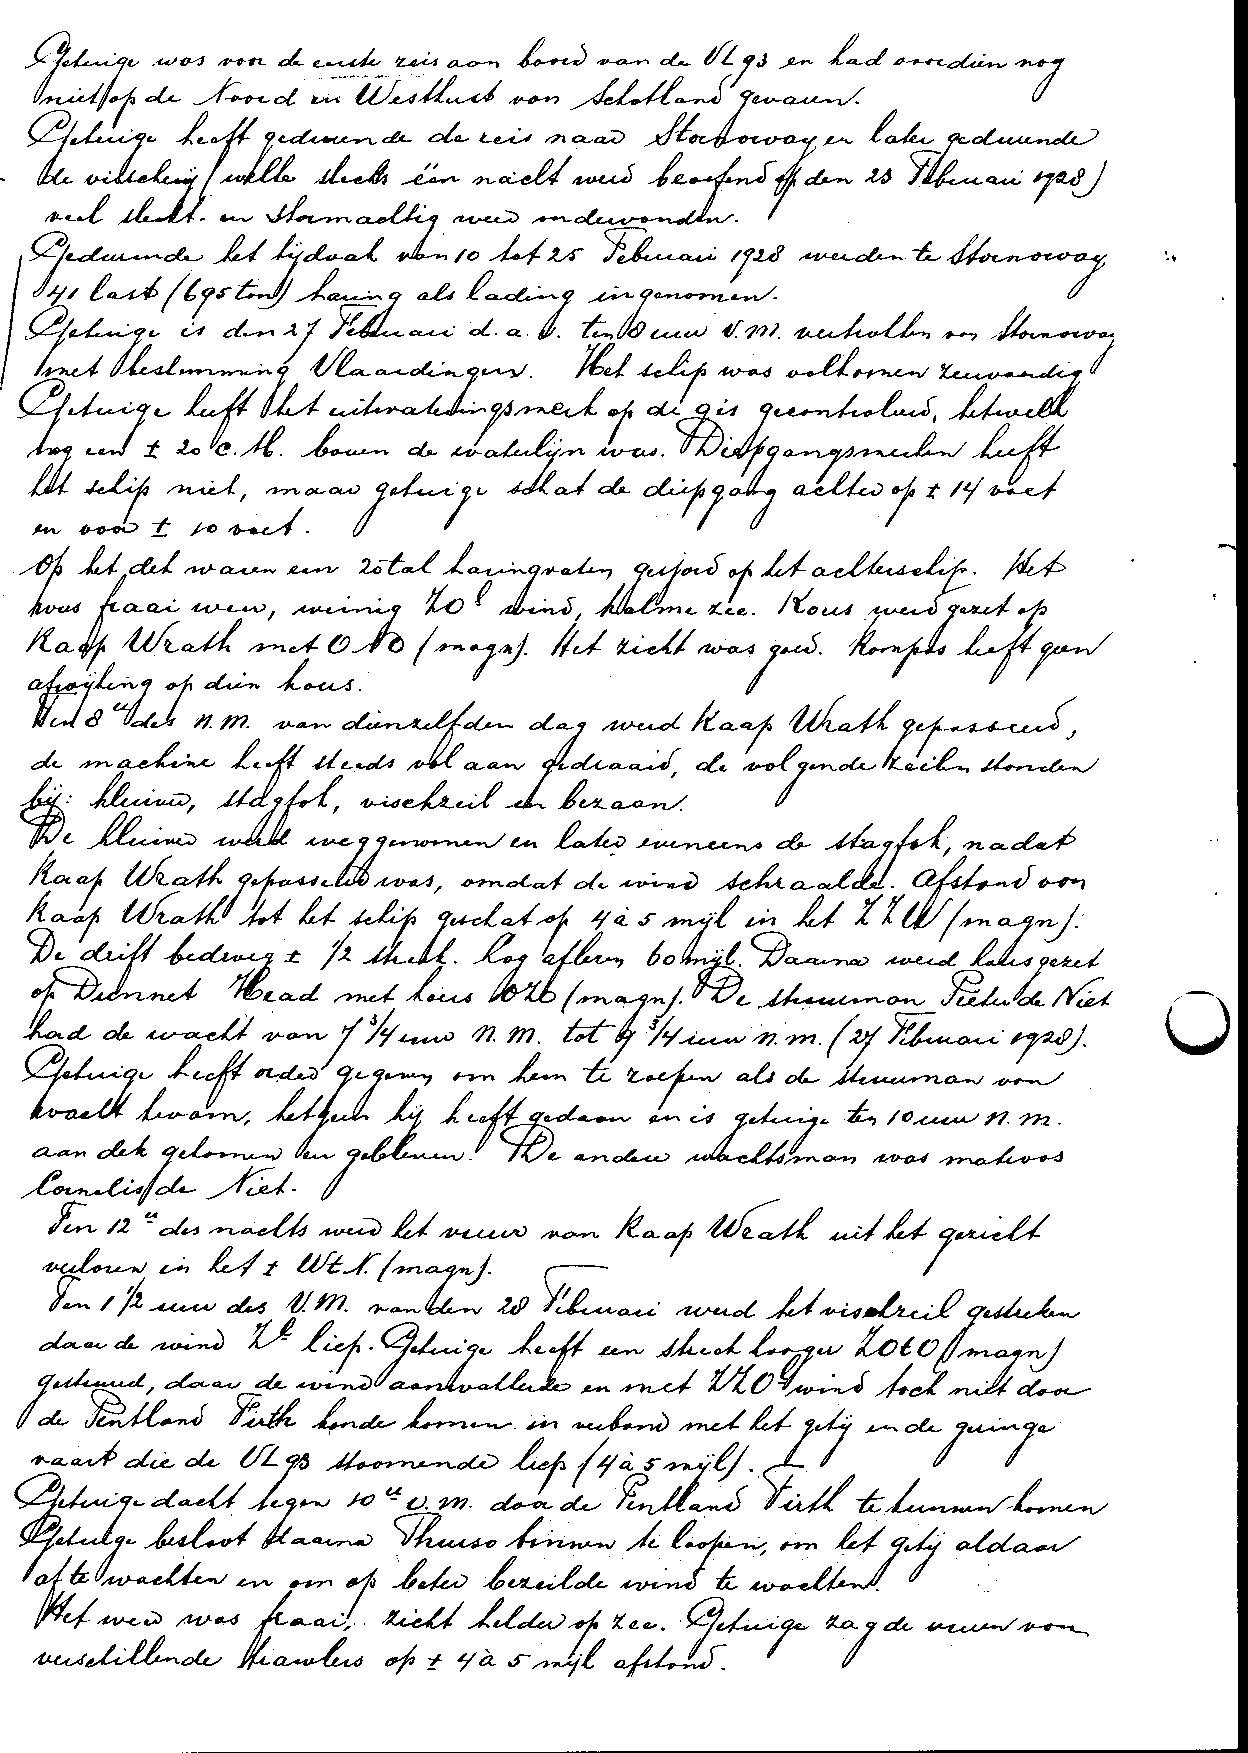 Getuige was voor de eerste reis aan boord van de VL 93 en had voordien nog
niet op de Noord en Westkust van Schotland gevaren.
Getuige heeft gedurende de reis naar Stornoway en later gedurende
de visscherij (welke slechts één nacht werd beoefend op den 23 Februari 1928)
veel slecht- en stormachtig weer ondervonden.
Gedurende het tijdvak van 10 tot 25 Februari 1928 werden te Stornoway
41 last (695 ton) haring als lading ingenomen.
Getuige is den 27 Februari d.a.v. ten 8 uur V.M. vertrokken van Stornoway
met bestemming Vlaardingen. Het schip was volkomen zeewaardig
Getuige heeft het uitwateringsmerk op de gis gecontroleerd, hetwelk
nog een ± 20 c.M. boven de waterlijn was. Diepgangsmerken heeft
het schip niet, maar getuige schat de diepgang achter op ± 14 voet
en voor ± 10 voet.
Op het dek waren een 20 tal haringvaten gesjord op het achterschip. Het
was fraai weer, weinig ZO wind, kalme zee. Koers werd gezet op
Kaap Wrath met ONO (magn). Het zicht was goed. Kompas heeft geen
afwijking op dien koers.
Ten 8 u des N.M. van dienzelfden dag werd Kaap Wrath gepasseerd,
de machine heeft steeds vol aan gedraaid, de volgende zeilen stonden
bij: kluiver, stagfok, vischzeil en bezaan.
De kluiver werd weggenomen en later eveneens de stagfok, nadat
Kaap Wrath gepasseerd was, omdat de wind schraalde. Afstand van
Kaap Wrath tot het schip geschat op 4 à 5 mijl in het ZZW (magn).
De drift bedroeg ± 1/2 streek. Log aflezen 60 mijl. Daarna werd koers gezet
op Dunnet Head met koers (magn). De stuurman Pieter de Niet
had de wacht van 7 3/4 uur N.M. tot 9 3/4 uur n.m. (27 Februari 1928).
Getuige heeft order gegeven om hem te roepen als de stuurman van
wacht kwam, hetgeen hij heeft gedaan en is getuige ten 10 uur N.M.
aan dek gekomen en gebleven. De andere wachtsman was matroos
Cornelis de Niet.
Ten 12 u des nachts werd het vuur van Kaap Wrath uit het gezicht
verloren in het ± WtN. (magn).
Ten 1 1/2 uur des V.M. van den 28 Februari werd het vischzeil gestreken
daar de wind liep. Getuige heeft een streek hooger ZOtO (magn)
gestuurd, daar de wind aanwakkerde en met ZZO wind toch niet door
de Pentland Firth konde komen in verband met het getij en de geringe
vaart die de VL 93 stoomende liep (4 à 5 mijl).
Getuige dacht tegen 10 u v.m. door de Pentland Firth te kunnen komen
Getuige besloot daarna Thurso binnen te loopen, om het getij aldaar
af te wachten en om op beter bezeilde wind te wachten.
Het weer was fraai, zicht helder op zee. Getuige zag de vuren van
verschillende trawlers op ± 4 à 5 mijl afstand.